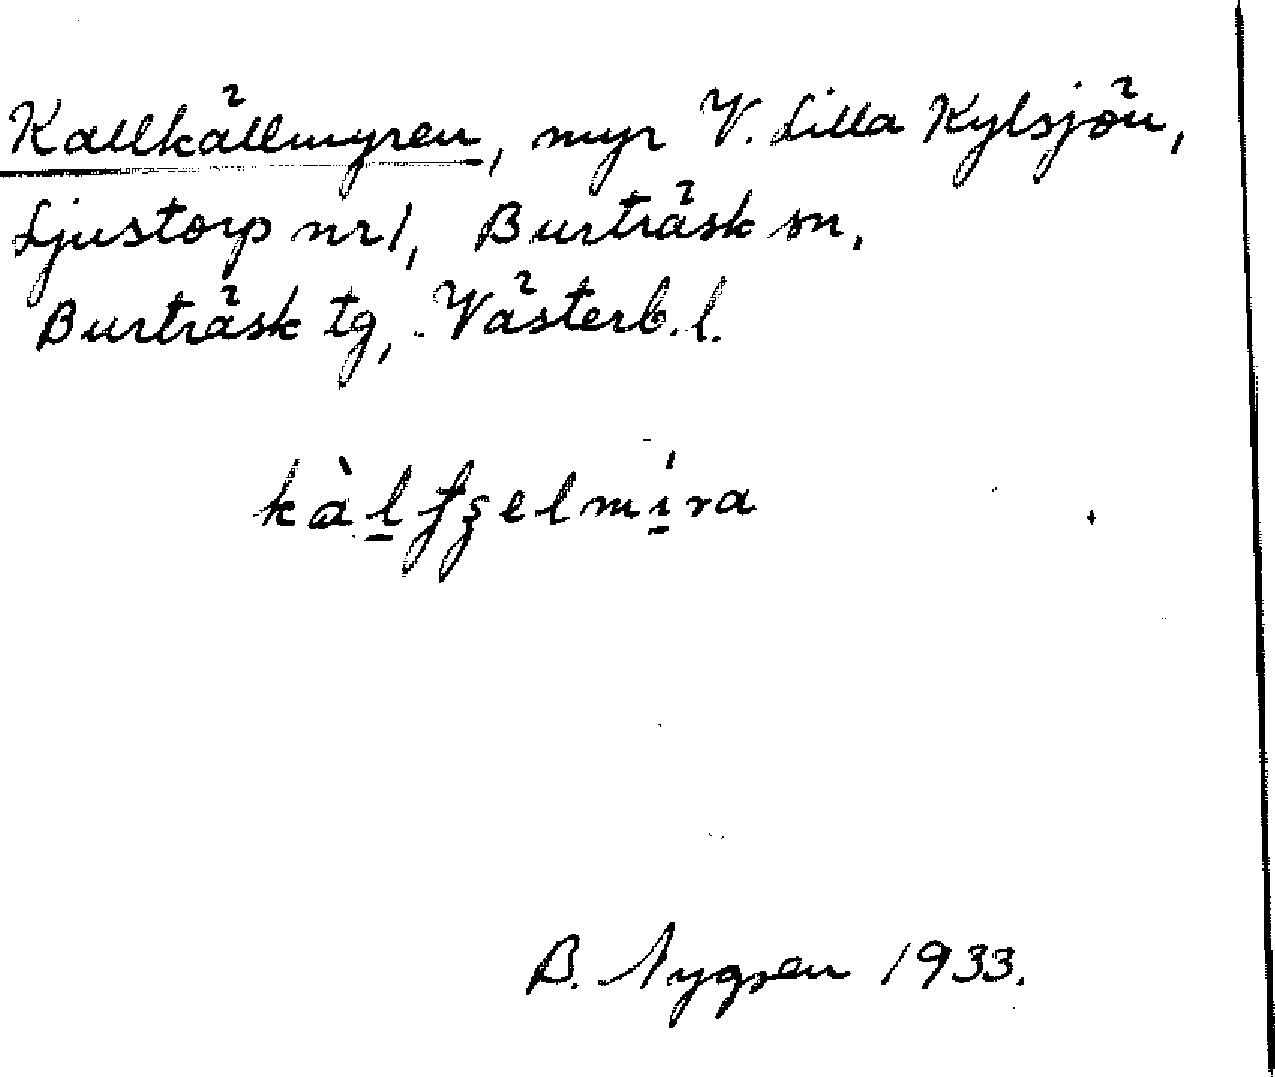 Kallkällmyren, myr V. Lilla Kylsjön,
Ljustorp nr 1, Burträsk sn,
Burträsk tg, Västerb. l.
B. Nygren 1933.